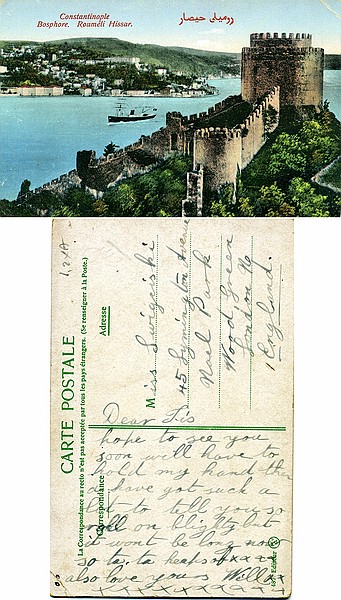 Constantinople
Bosphore. Rouméli Hissar.
روميلى حيصار
CARTE POSTALE
La Correspondance au recto n'est pas acceptée par tous les pays étrangers. (Se renseigner à la Poste.)
Correspondance
Adresse
Miss
45 Lymington Avenue
Noel Park
Wood Green
London N
England.
Dear Sis
hope to see you
soon will have to
hold my hand then
I have got such a
lot to tell you so
roll on blighty but
it wont be long now
so ta ta heaps of xxxx
also love yours Will x
xxxxxxxxxx